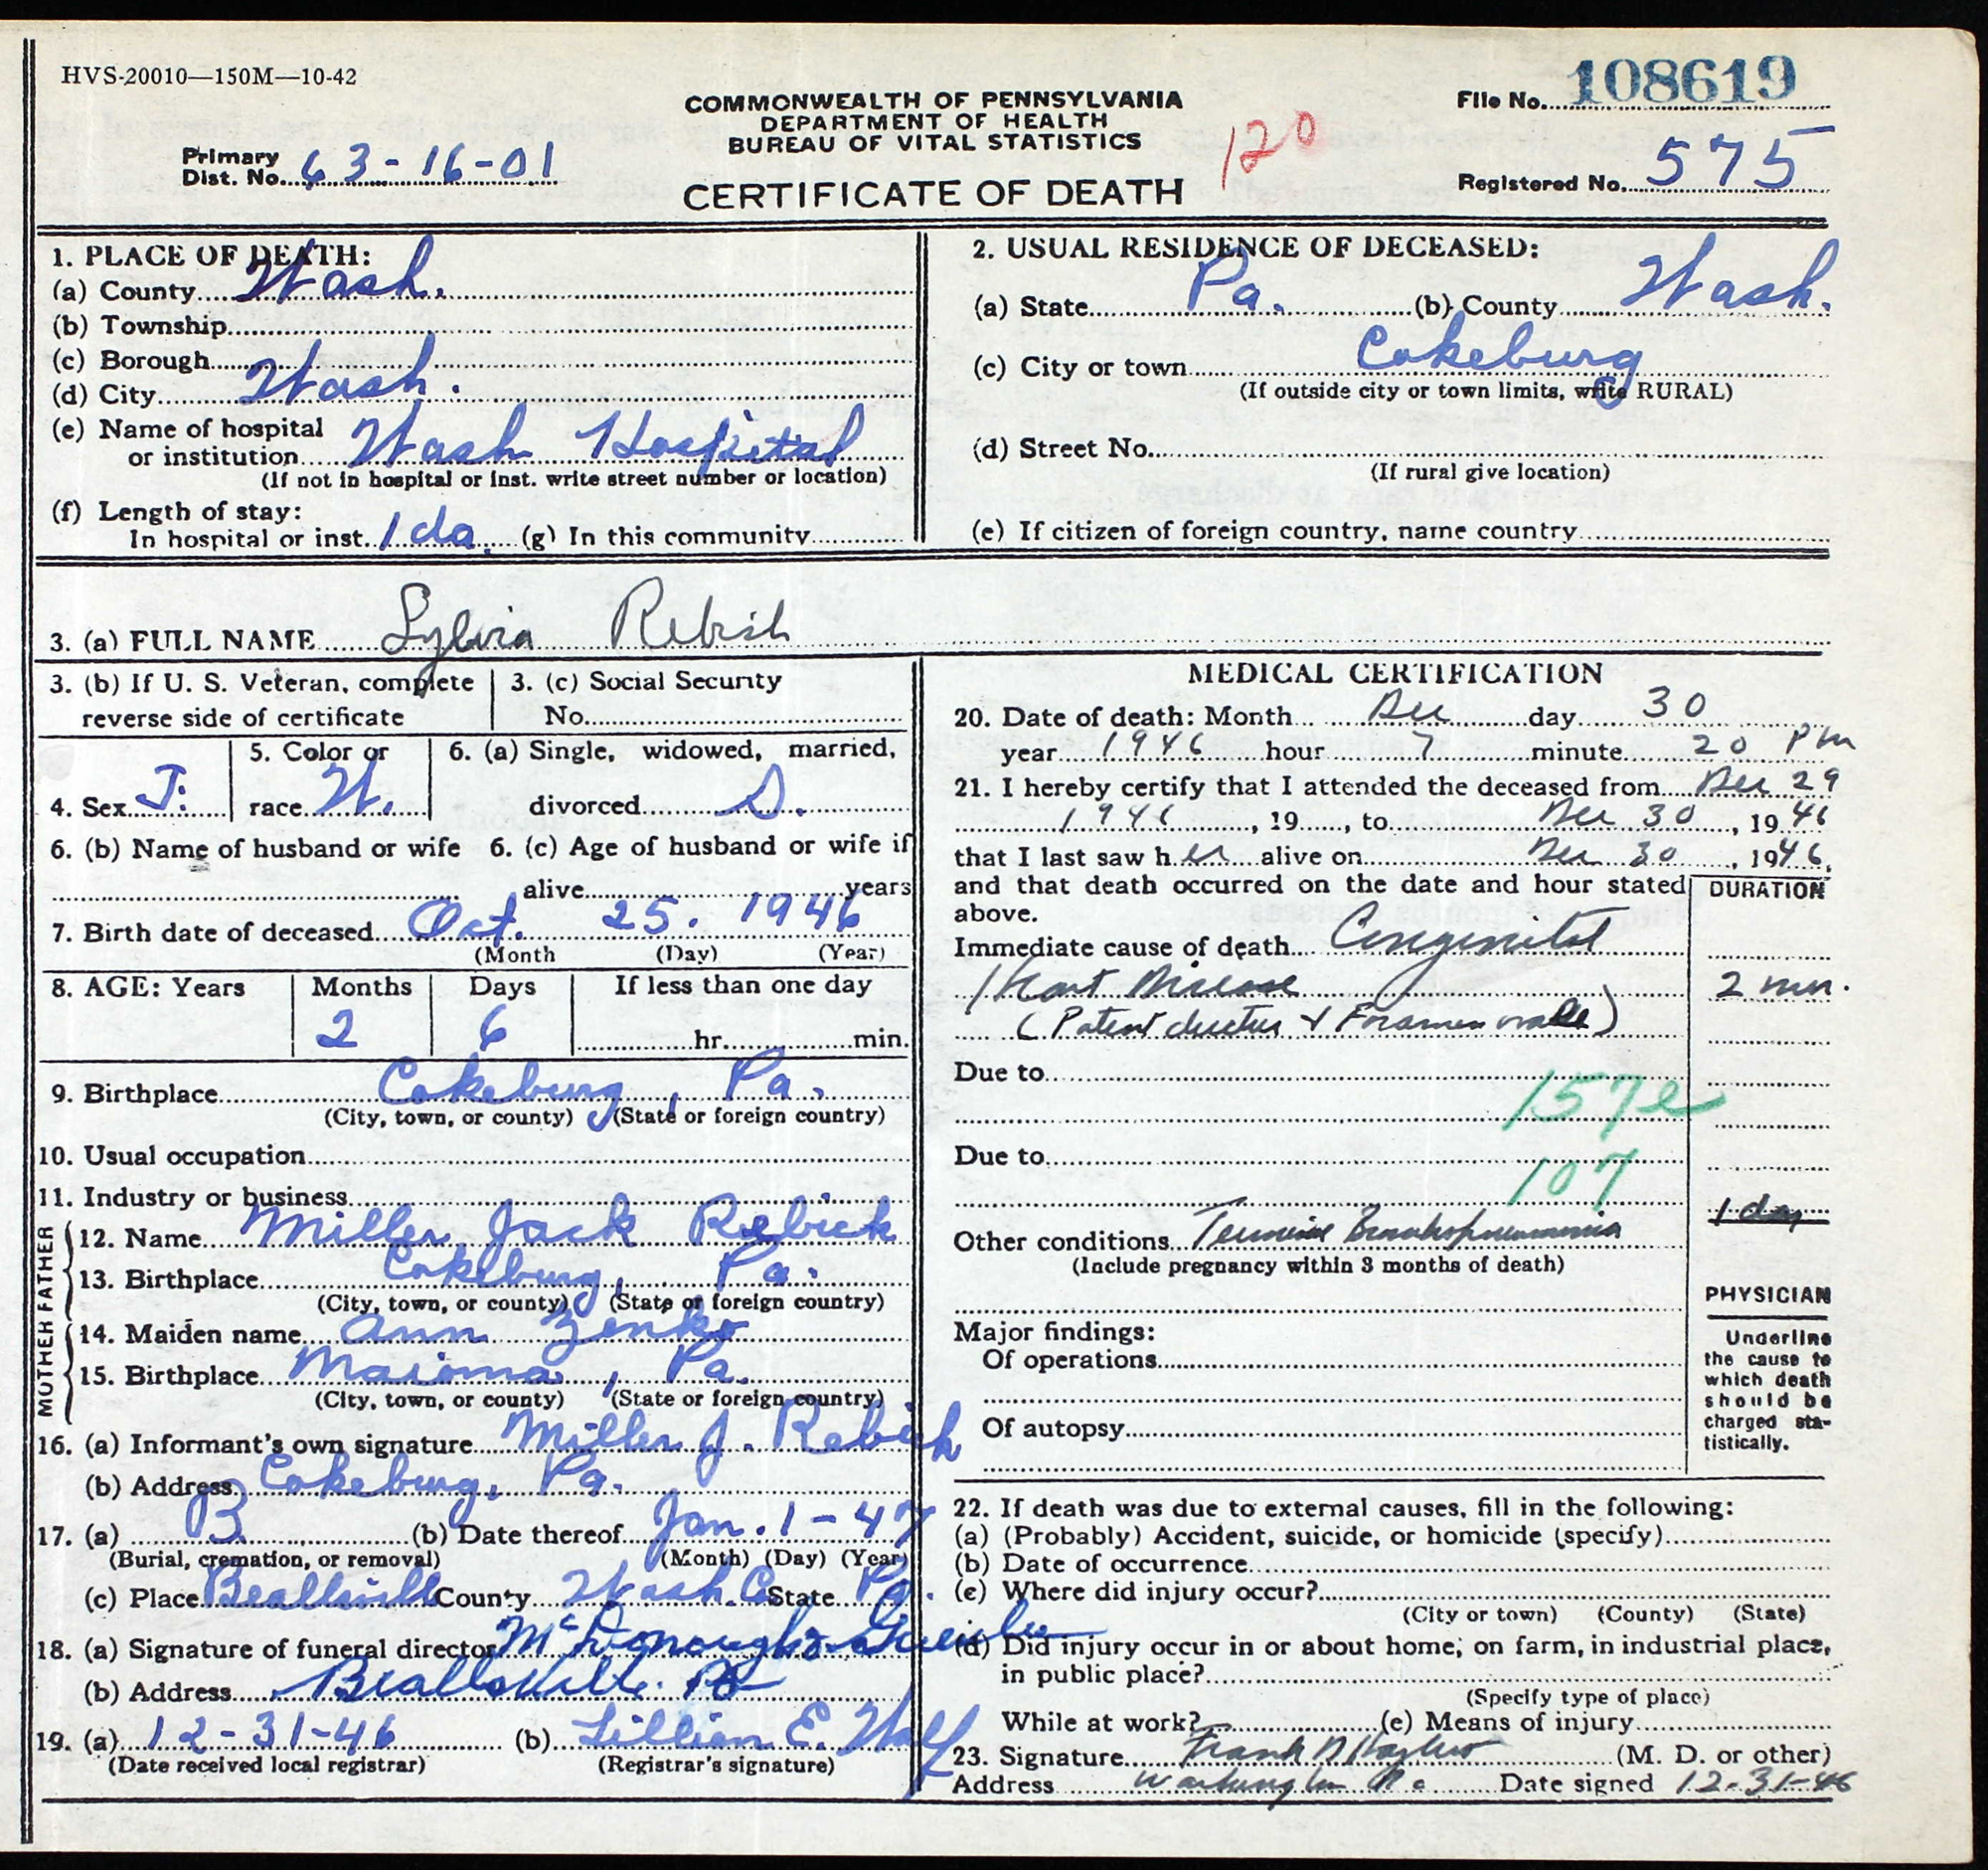 HVS-20010—150M—10-42
COMMONWEALTH OF PENNSYLVANIA
DEPARTMENT OF HEALTH
BUREAU OF VITAL STATISTICS
CERTIFICATE OF DEATH
120
File No. 108619
Registered No. 575
Primary
Dist. No. 63-16-01
1. PLACE OF DEATH:
(a) County Wash.
(b) Township
(c) Borough
(d) City Wash.
(e) Name of hospital
or institution Wash Hospital
(If not in hospital or inst. write street number or location)
(f) Length of stay:
In hospital or inst. 1 da. (g) In this community
2. USUAL RESIDENCE OF DECEASED:
(a) State Pa. (b) County Wash.
(c) City or town Cokeburg
(If outside city or town limits, write RURAL)
(d) Street No.
(If rural give location)
(e) If citizen of foreign country, name country
3. (a) FULL NAME Sylvia Rebish
3. (b) If U. S. Veteran, complete
reverse side of certificate
3. (c) Social Security
No.
4. Sex F.
5. Color or
race W.
6. (a) Single, widowed, married,
divorced S.
6. (b) Name of husband or wife
6. (c) Age of husband or wife if
alive years
7. Birth date of deceased Oct. 25. 1946
(Month (Day) (Year)
8. AGE: Years Months Days If less than one day
2 6 hr. min.
9. Birthplace Cokeburg, Pa.
(City, town, or county) (State or foreign country)
10. Usual occupation
11. Industry or business
FATHER
12. Name Miller Jack Rebich
13. Birthplace Cokeburg, Pa.
(City, town, or county) (State or foreign country)
MOTHER
14. Maiden name Ann Zenko
15. Birthplace Maioma, Pa.
(City, town, or county) (State or foreign country)
16. (a) Informant's own signature Miller J. Rebich
(b) Address Cokeburg, Pa.
17. (a) B. (b) Date thereof Jan. 1-47
(Burial, cremation, or removal) (Month) (Day) (Year)
(c) Place Beallsville County Wash. Co State Pa.
18. (a) Signature of funeral director McDonough
(b) Address Beallsville. Pa
19. (a) 12-31-46 (b) Lillian E. Wolf
(Date received local registrar) (Registrar's signature)
MEDICAL CERTIFICATION
20. Date of death: Month Dec day 30
year 1946 hour 7 minute 20 PM
21. I hereby certify that I attended the deceased from Dec 29
1946, 19, to Dec 30, 1946
that I last saw her alive on Dec 30, 1946,
and that death occurred on the date and hour stated
above.
DURATION
Immediate cause of death Congenital
Heart Disease 2 mon.
(Patent ductus & Foramen ovale)
Due to
157e
Due to
107
1 day
Other conditions Terminal Bronchopneumonia
(Include pregnancy within 3 months of death)
Major findings:
Of operations
Of autopsy
PHYSICIAN
Underline
the cause to
which death
should be
charged sta-
tistically.
22. If death was due to external causes, fill in the following:
(a) (Probably) Accident, suicide, or homicide (specify)
(b) Date of occurrence
(c) Where did injury occur?
(City or town) (County) (State)
(d) Did injury occur in or about home, on farm, in industrial place,
in public place?
(Specify type of place)
While at work? (e) Means of injury
23. Signature Frank (M. D. or other)
Address Washington Pa Date signed 12-31-46